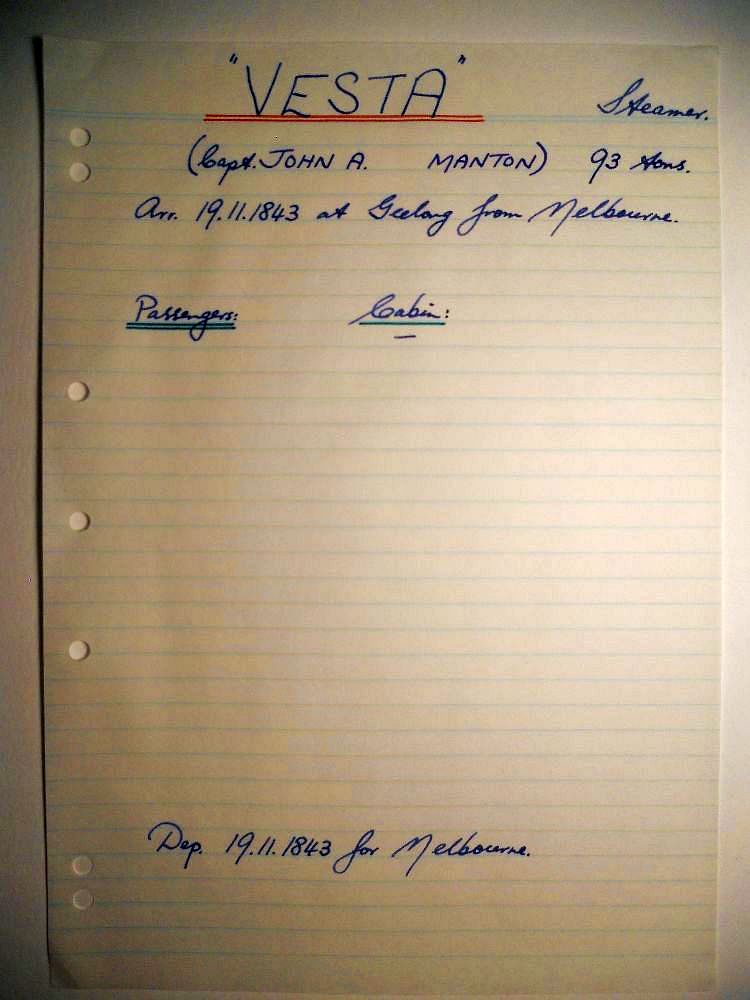 "VESTA" Steamer.
(Capt. JOHN A. MANTON) 93 tons.
Arr. 19.11.1843 at Geelong from Melbourne.
Passengers: Cabin:
—
Dep. 19.11.1843 for Melbourne.